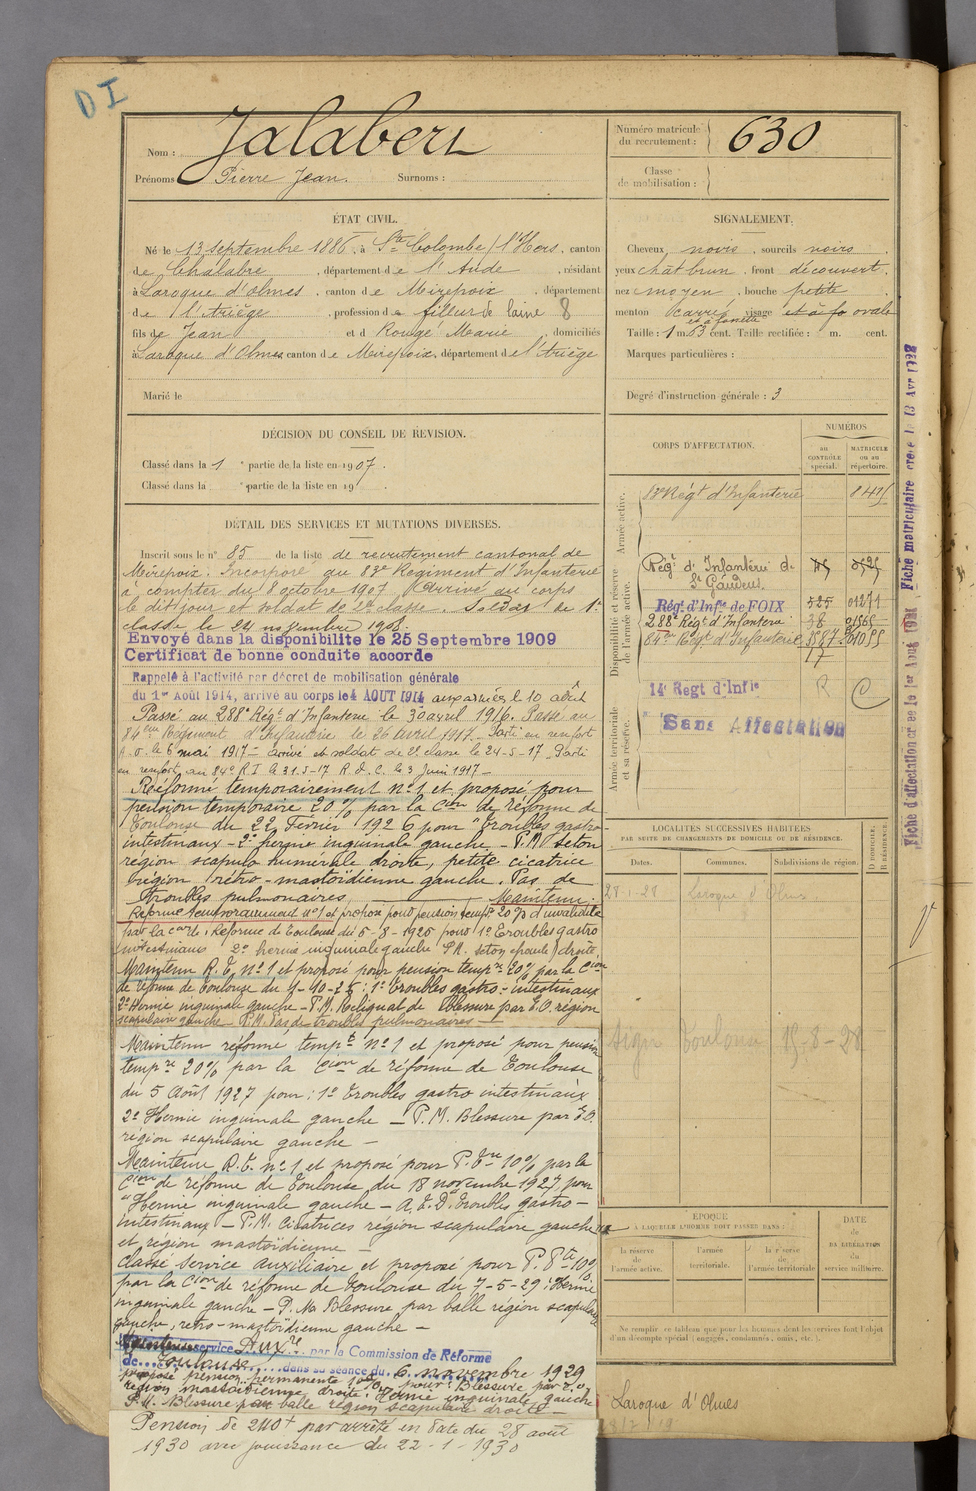 DI
Nom : Jalabert
Prénoms Pierre Jean. Surnoms :
Numéro matricule du recrutement : 630
Classe de mobilisation :
ÉTAT CIVIL.
Né le 13 septembre 1886, à Ste Colombe / l'Hers, canton
de Chalabre, département de l'Aude, résidant
à Laroque d'olmes, canton de Mirepoix, département
de l'Ariège, profession de fileur de laine 8
fils de Jean et de Rougé Marie, domiciliés
à Laroque d'Olmes canton de Mirepoix, département de l'Ariège
Marié le
SIGNALEMENT.
Cheveux noirs, sourcils noirs
yeux chât brun, front découvert,
nez moyen, bouche petite
menton carré, visage ovale
et à fossette
Taille : 1 m. 63 cent. Taille rectifiée : m. cent.
Marques particulières :
Degré d'instruction générale : 3
DÉCISION DU CONSEIL DE REVISION.
Classé dans la 1e partie de la liste en 1907.
Classé dans la e partie de la liste en 19 .
DÉTAIL DES SERVICES ET MUTATIONS DIVERSES.
Inscrit sous le n° 85 de la liste de recrutement cantonal de
Mirepoix. Incorporé au 83e Régiment d'Infanterie
à compter du 8 octobre 1907. Arrivé au corps
le dit jour et soldat de 2e classe. Soldat de 1e
classe le 24 novembre 1908.
Envoyé dans la disponibilite le 25 Septembre 1909
Certificat de bonne conduite accorde
Rappelé à l'activité par décret de mobilisation générale
du 1er Août 1914, arrivé au corps le 4 AOUT 1914 aux armées le 10 août
Passé au 288e Régt d'Infanterie le 30 avril 1916. Passé au
84eme Régiment d'Infanterie le 26 avril 1917. Parti en renfort
A.O. le 6 mai 1917 - arrivé et soldat de 2e classe le 24-5-17 Parti
en renfort au 84e R.I le 31.5-17 R.D.C. le 3 Juin 1917 -
Réformé temporairement n°1 et proposé pour
pension temporaire 20% par la Cion de réforme de
Toulouse du 22 Février 1926 pour "Troubles gastro
intestinaux - 2° hernie inguinale gauche - P.M seton
région scapulo humérale droite, petite cicatrice
région rétro-mastoïdienne gauche. Pas de
troubles pulmonaires Maintenu.
Réforme temporairement n°1 et propose pour pension tempre 20% d'invalidité
par la Con de Réforme de Toulouse du 5-8-1925 pour 1° Troubles gastro
intestinaux 2° hernie inguinale gauche P.M. seton épaule droite
Maintenu R.T. n°1 et proposé pour pension tempre 20% par la Cion
de réforme de Toulouse du 1-10-26 : 1° Troubles gastro-intestinaux
2° Hernie inguinale gauche - P.M. Reliquat de blessure par E.O. région
scapulaire gauche - P.M. Pas de troubles pulmonaires -
Maintenu réformé tempt n°1 et proposé pour pension
tempre 20% par la Cion de réforme de Toulouse
du 5 Août 1927 pour : 1° Troubles gastro intestinaux
2° Hernie inguinale gauche - P.M. Blessure par E.O.
région scapulaire gauche -
Maintenu R.T. n°1 et proposé pour P.Tre 10% par la
Cion de réforme de Toulouse du 18 novembre 1927 pour
"Hernie inguinale gauche - A.E.D. Troubles gastro-
intestinaux - P.M. Cicatrices région scapulaire gauche
et région mastoïdienne -
Classé Service auxiliaire et proposé pour P.Pte 10%
par la Cion de réforme de Toulouse du 7-5-29 : Hernie
inguinale gauche - P.M. Blessure par balle région scapulaire
gauche, rétro-mastoïdienne gauche -
service Auxre par la Commission de Réforme
de Toulouse dans sa séance du 6 novembre 1929
proposé pension permanente 10% pour: Blessure par E.O,
région mastoïdienne droite. Hernie inguinale gauche
P.M. Blessure par balle région scapulaire droite
Pension de 240f par arrêté en date du 28 août
1930 avec jouissance du 22-1-1930
CORPS D'AFFECTATION.
NUMÉROS
AU CONTRÔLE spécial.
MATRICULE ou au répertoire.
Armée active.
83e Régt d'Infanterie
Disponibilité et réserve de l'armée active.
Régt d'Infanterie de
St Gaudens
Régt d'Infie de FOIX 525 01271
288e Régt d'Infanterie 38 01565
84eme Régt d'Infanterie
17
Armée territoriale et sa réserve.
14e Regt d'Infie R C
Sans Affectation
LOCALITÉS SUCCESSIVES HABITÉES
PAR SUITE DE CHANGEMENTS DE DOMICILE OU DE RÉSIDENCE.
Dates. Communes. Subdivisions de région. D DOMICILE. R RÉSIDENCE.
28-1-28 Laroque d'Olmes
Toulouse 15-8-28
ÉPOQUE
A LAQUELLE L'HOMME DOIT PASSER DANS :
la réserve de l'armée active.
l'armée territoriale.
la réserve de l'armée territoriale
DATE DE LA LIBÉRATION du service militaire.
Ne remplir ce tableau que pour les hommes dont les services font l'objet
d'un décompte spécial (engagés, condamnés, omis, etc.).
Laroque d'Olmes
Fiche matriculaire créée le 13 Avr 1928
Fiche d'affectation créée le 1er Août